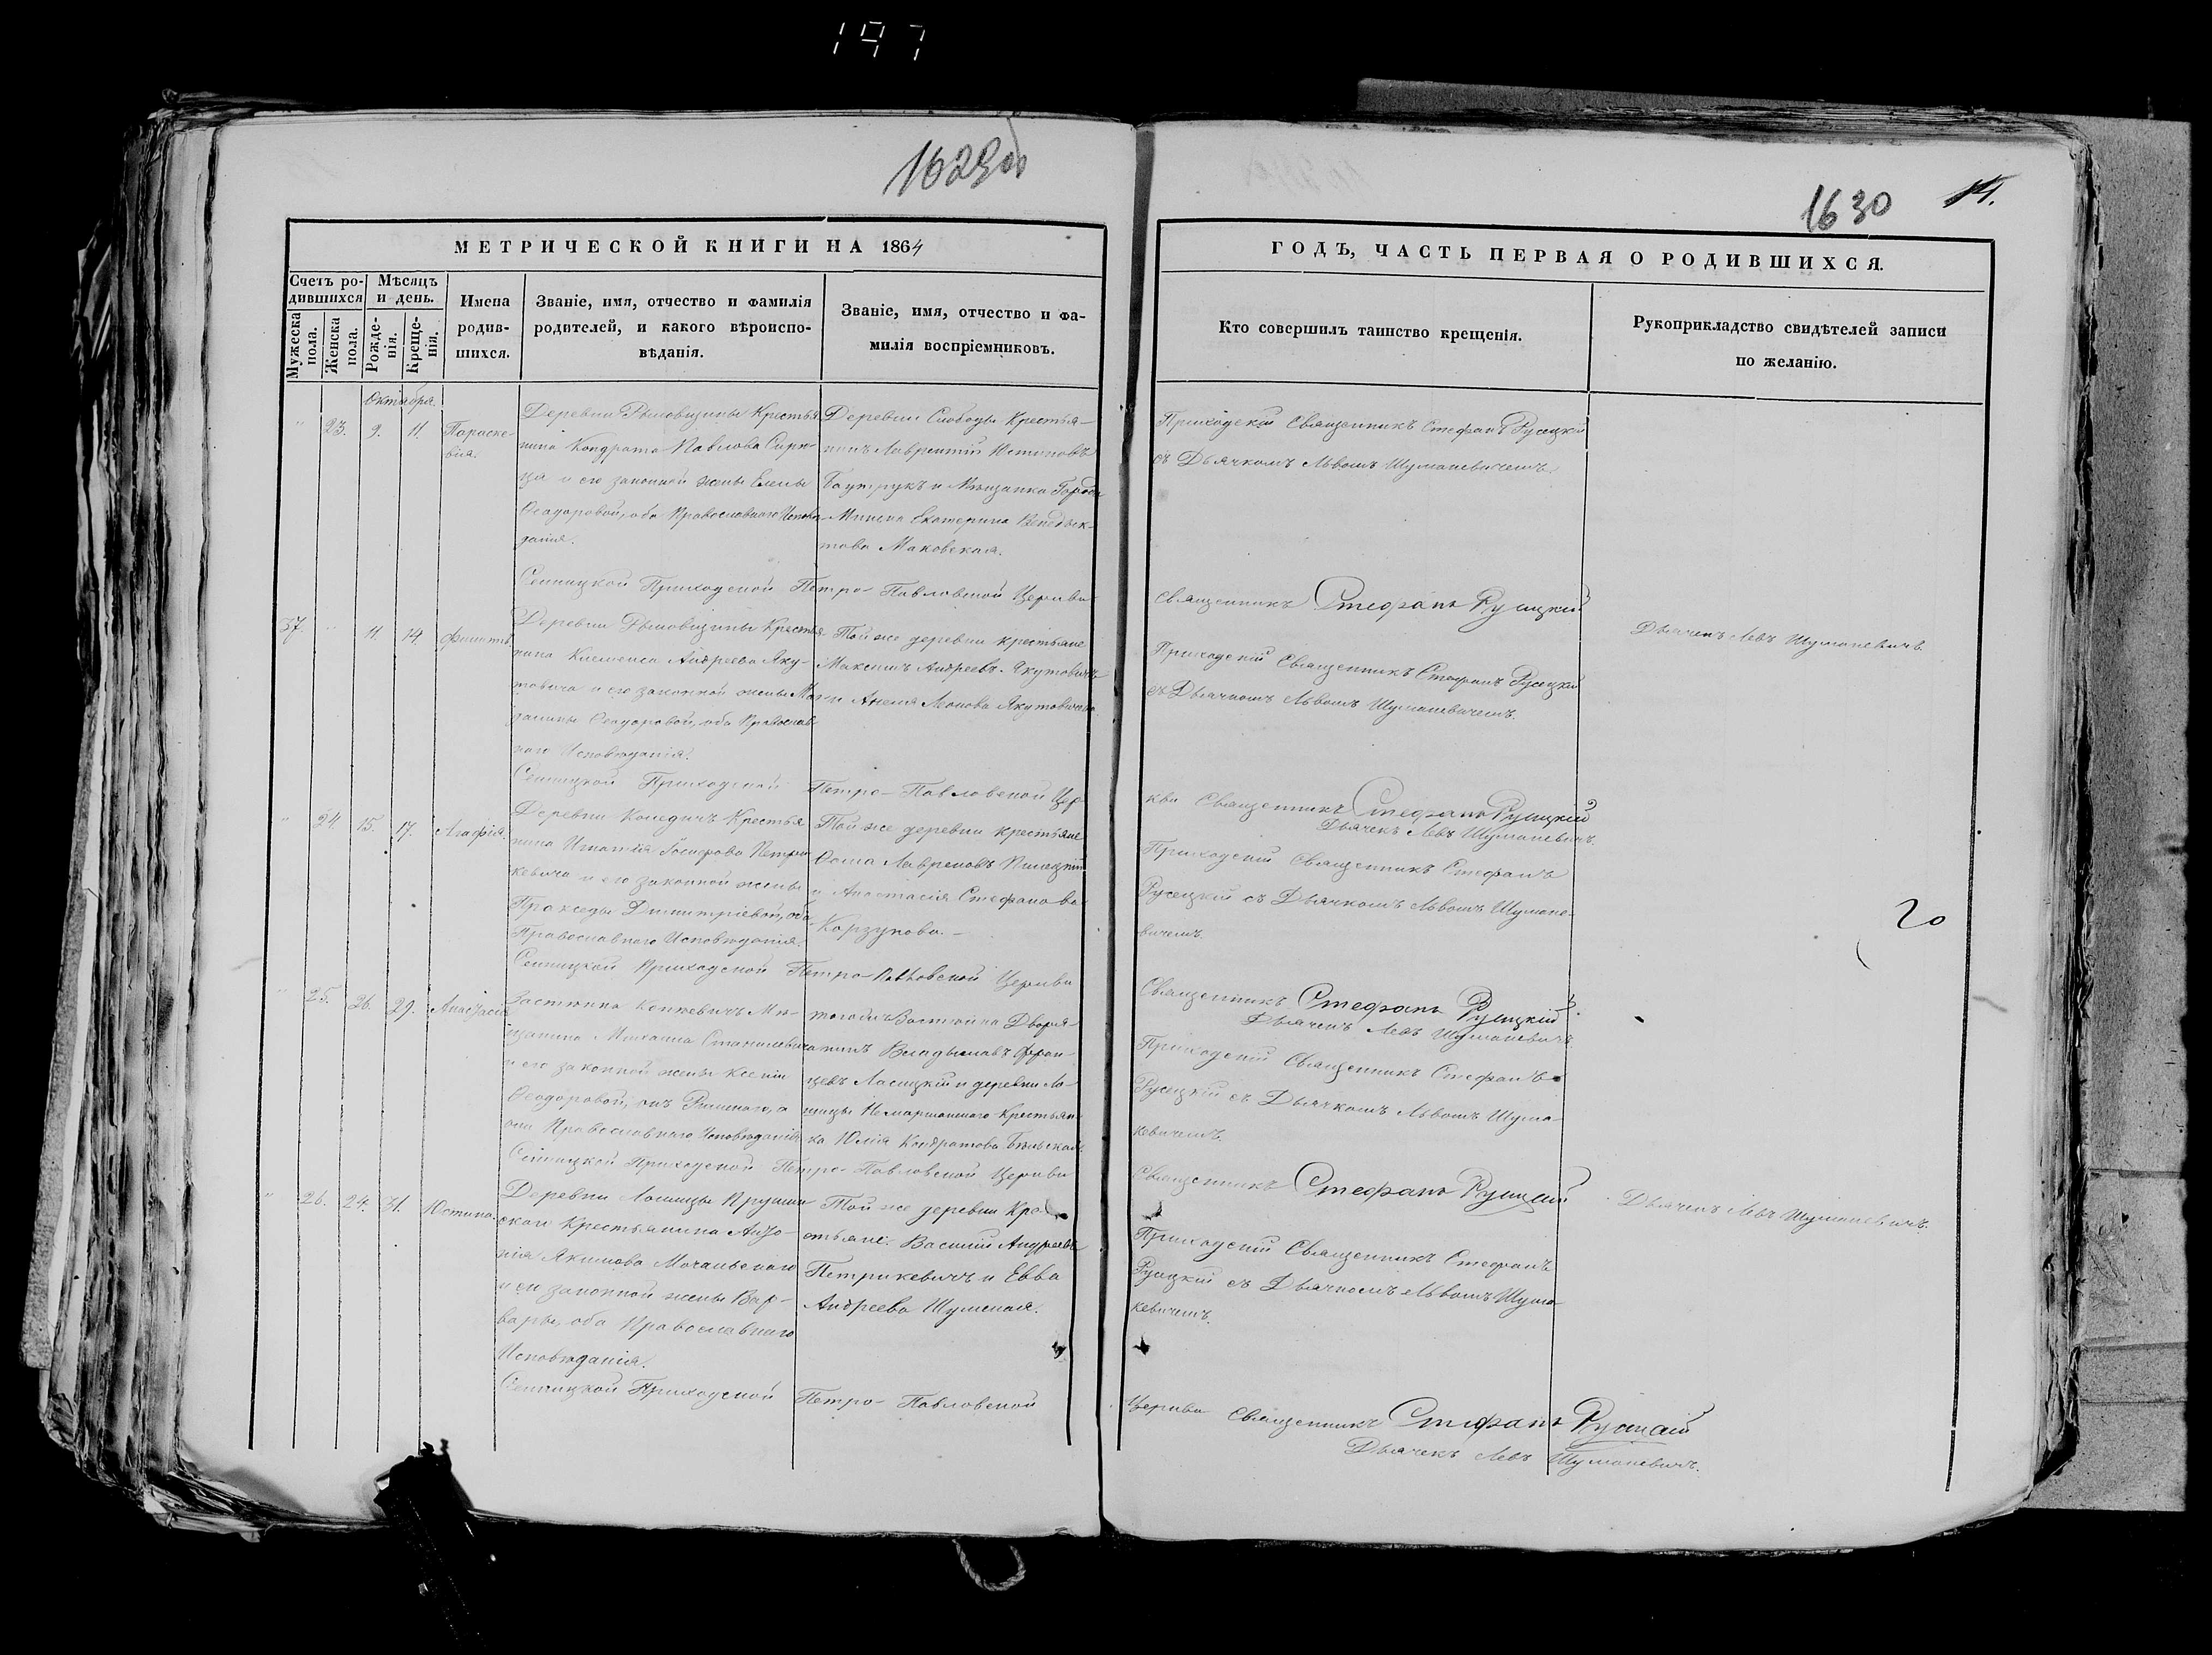 197
1629об
1630 14.
МЕТРИЧЕСКОЙ КНИГИ НА 1864
Счетъ родившихся
Мѣсяцъ и день.
Мужеска пола.
Женска пола.
Рожденія.
Крещенія.
Имена родившихся.
Званіе, имя, отчество и фамилія
родителей, и какого вѣроиспо-
вѣданія.
Званіе, имя, отчество и фа-
милія воспріемниковъ.
ГОДЪ, ЧАСТЬ ПЕРВАЯ О РОДИВШИХСЯ.
Кто совершилъ таинство крещенія.
Рукоприкладство свидѣтелей записи
по желанію.
Октября.
" 23. 9. 11. Параске-
вія.
Деревни Крестья-
нина Кондрата Павлова
и его законной жены Елены
Ѳеодоровой, оба Православнаго Исповѣ-
данія.
Деревни Слободы Крестья-
нинъ Лаврентій
Баутрукъ и Мѣщанка Города
Минска Екатерина Венедык-
това Маковская.
Приходскій Священникъ Стефанъ Русецкій
съ Дьячкомъ Львомъ Шумаковичемъ.
Сеницкой Приходской Петро-Павловской Церкви
Священникъ Стефанъ Русецкій
37. " 11. 14.
Деревни Крестья-
нина Климента Андреева Яку-
товича и его законной жены Маг-
далины Ѳеодоровой, оба Православ-
наго Исповѣданія.
Той же деревни крестьяне
Максимъ Андреевъ Якутовичъ
и Анеля Леонова Якутовичева
Дьячекъ Левъ Шумакевичъ.
Приходскій Священникъ Стефанъ Русецкій
съ Дьячкомъ Львомъ Шумакевичемъ.
Сеницкой Приходской Петро-Павловской Цер-
кви Священникъ Стефанъ Русецкій
Дьячекъ Левъ Шумакевичъ.
" 24. 15. 17. Агафія.
Деревни Копедичъ Крестья-
нина Игнатія Іосифова Петри-
кевича и его законной жены
Пракседы Димитріевой, оба
Православнаго Исповѣданія.
Той же деревни крестьяне
Ѳома Лавреновъ
и Анастасія Стефанова
Корзунова.-
Приходскій Священникъ Стефанъ
Русецкій съ Дьячкомъ Львомъ Шумаке-
вичемъ.
20
Сеницкой Приходской Петро-Павловской Церкви
Священникъ Стефанъ Русецкій
Дьячекъ Левъ Шумакевичъ
" 25. 26. 29. Анастасія
Застѣнка Мѣ-
щанина Михаила
и его законной жены Ксеніи
Ѳеодоровой, онъ Римскаго, а
она Православнаго Исповѣданія
тогожъ Застѣнка Дворя-
нинъ Владыславъ Фран-
цевъ Ласицкій и деревни Ло-
шицы Крестьян-
ка Юлія Кондратова Бѣльская.
Приходскій Священникъ Стефанъ
Русецкій съ Дьячкомъ Львомъ Шума-
кевичемъ.
Сеницкой Приходской Петро-Павловской Церкви
Священникъ Стефанъ Русецкій
Дьячекъ Левъ Шумакевичъ.
" 26. 24. 31. Юстина.
Деревни Лошицы Прушин-
скаго Крестьянина Анто-
нія Якимова Мочальскаго
и его законной жены Вар-
вары, оба Православнаго
Исповѣданія.
Той же деревни Кре-
стьяне: Василій Андреевъ
Петрикевичъ и Евва
Андреева Шумская.
Приходскій Священникъ Стефанъ
Русецкій съ Дьячкомъ Львомъ Шума-
кевичемъ.
Сеницкой Приходской Петро-Павловской
Церкви Священникъ Стефанъ Русецкій
Дьячекъ Левъ Шумакевичъ.